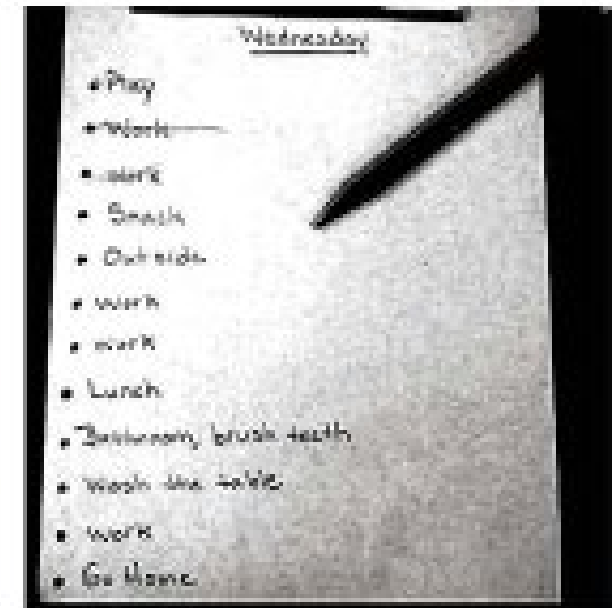 Wednesday
• Play
• Work
• work
• Snack
• Outside
• work
• work
• Lunch
• Bathroom, brush teeth
• Wash the table
• work
• Go Home